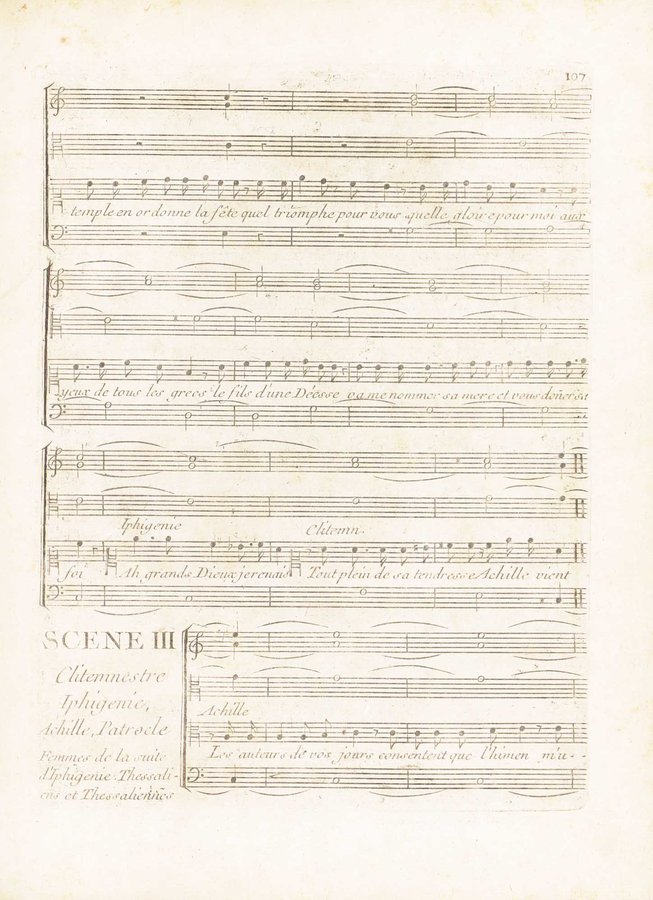 107
temple en ordonne la fête quel triomphe pour vous quelle gloire pour moi aux
yeux de tous les grecs le fils d'une Déesse va me nommer sa mere et vous doñer sa
Iphigenie
Clitemn.
foi Ah grands Dieux je renais Tout plein de sa tendresse Achille vient
SCENE III
Clitemnestre
Iphigenie,
Achille, Patrocle
Femmes de la suite
d'Iphigenie. Thessali-
ens et Thessalieñes
Achille
Les auteurs de vos jours consentent que l'himen m'u-